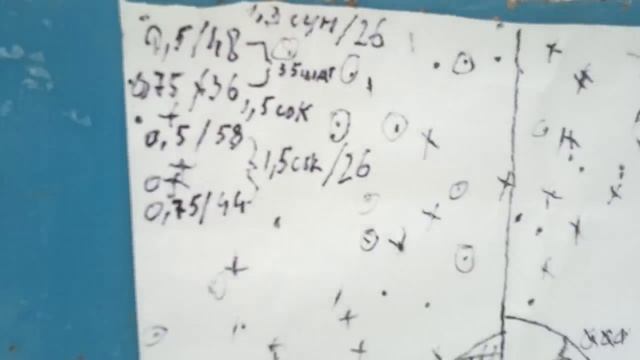 1,3 сун/26
0,5/48
35шаг
0,75/36
1,5сок
0,5/58
1,5сок/26
0,75/44